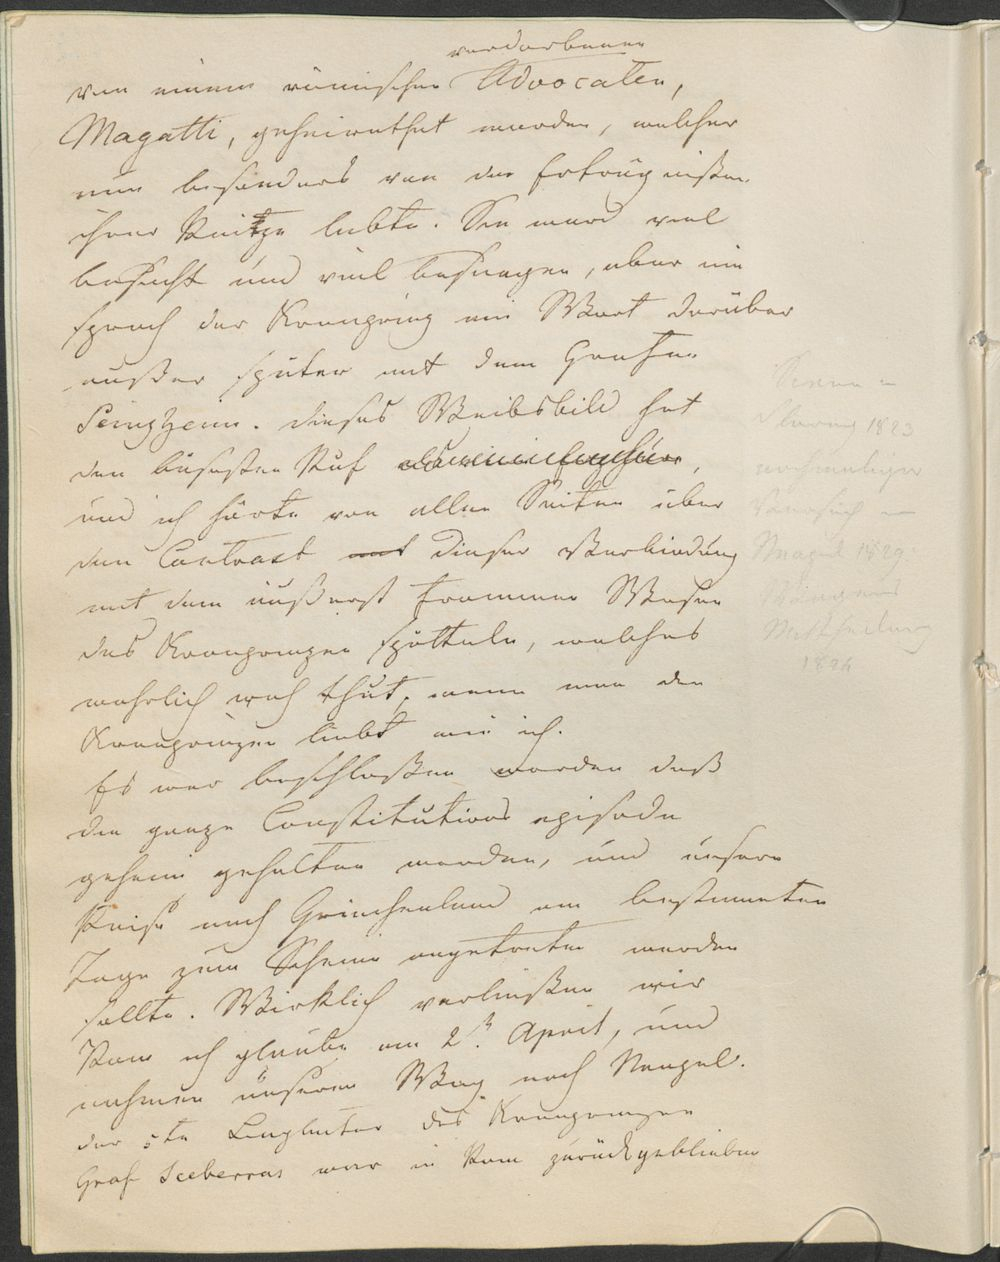 verdorbenen
von einem römischen Advocaten,
Magatti, geheirathet worden, welcher
nun besonders von den Erträgnißen
ihrer Reitze lebte. Sie ward viel
besucht und viel besungen, aber nie
sprach der Kronprinz ein Wort darüber
außer später mit dem Grafen
Seinsheim. Dieses Weibsbild hat
den bösesten Ruf,
und ich hörte von allen Seiten über
den Contrast mit dieser Verbindung
mit dem äußerst frommen Wesen
des Kronprinzen spötteln, welches
wahrlich weh thut, wenn man den
Kronprinzen liebt wie ich.
Es war beschloßen worden daß
die ganze Constitutions episode
geheim gehalten werden, und unsere
Reise nach Griechenland am bestimmten
Tage zum Scheine angetreten werden
sollte. Wirklich verließen wir
Rom ich glaube am 2t. April, und
nahmen unseren Weg nach Neapel.
der 5te Begleiter des Kronprinzen
Graf Sceberras war in Rom zurückgeblieben
1823
Versuch
Neapel 1829
Mittheilung